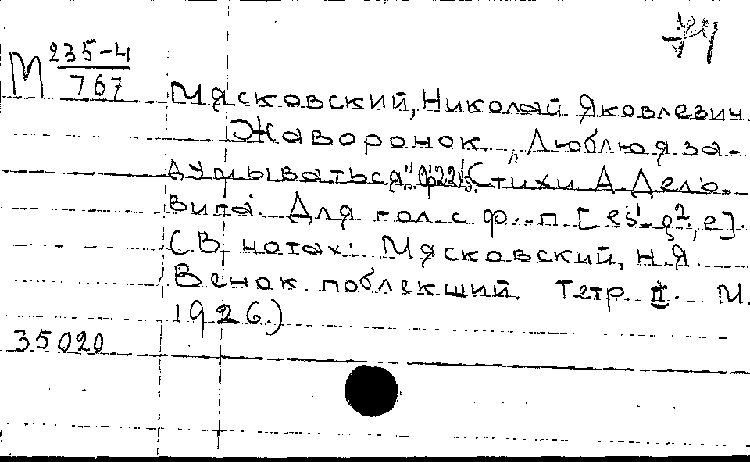 М 235-4
767
Мясковский, Николай Яковлевич
Жаворонок. „Люблю за-
думываться" Стихи А. Дель-
вига. Для гол. с ф.-п. [es¹-g², e].
(В нотах: Мясковский, Н.Я.
Венок поблекший. Тетр. II. М.
1926.)
35020